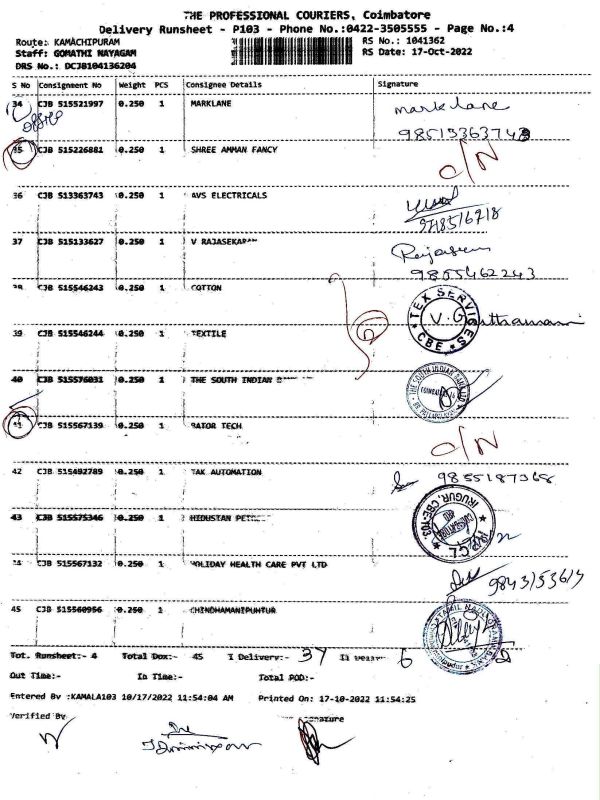 THE PROFESSIONAL COURIERS, Coimbatore
Delivery Runsheet - P103 - Phone No.:0422-3505555 - Page No.:4
Route: KAMACHIPURAM RS No.: 1041362
Staff: GOMATHI NAYAGAM RS Date: 17-Oct-2022
DRS No.: DCJB104136204
S No Consignment No Weight PCS Consignee Details Signature
34 CJB 515521997 0.250 1 MARKLANE mark lane
35 CJB 515226881 0.250 1 SHREE AMMAN FANCY O/N
36 CJB 513363743 0.250 1 AVS ELECTRICALS
37 CJB 515133627 0.250 1 V RAJASEKARAN
9855462243
38 CJB 515546243 0.250 1 COTTON TEX SERVICES CBE V.G
39 CJB 515546244 0.250 1 TEXTILE
40 CJB 515576031 0.250 1 THE SOUTH INDIAN THE SOUTH INDIAN BANK LTD
41 CJB 515567139 0.250 1 BATOR TECH O/N
42 CJB 515492789 0.250 1 TAK AUTOMATION 9855187368
43 CJB 515575346 0.250 1 HIDUSTAN IRUGUR, CBE-103
44 CJB 515567132 0.250 1 HOLIDAY HEALTH CARE PVT LTD
45 CJB 515560956 0.250 1 CHINDHAMANIPUHTUR TAMIL NADU
Tot. Runsheet:- 4 Total Dox:- 45 Delivery:- 37 6 2
Out Time:- In Time:- Total POD:-
Entered By :KAMALA103 10/17/2022 11:54:04 AM Printed On: 17-10-2022 11:54:25
Verified By Signature